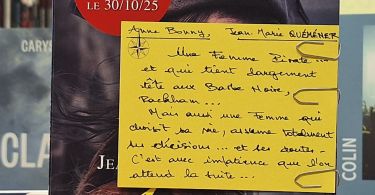 LE 30/10/25
CARYS
Anne Bonny, Jean Marie QUÉMÉNER
Une Femme Pirate...
et qui tient largement
tête aux Barbe Noire,
Rackham...
Mais aussi une Femme qui
choisit sa vie, assume totalement
ses décisions... et ses doutes.
C'est avec impatience que l'on
attend la suite...
CLA
JEA
COLIN